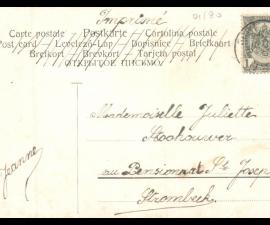 01/80
Imprimé
Carte postale Postkarte Cartolina postale
Post card — Levelező-Lap — Dopisnice — Briefkaart
Brefkort — Brevkort — Tarjeta postal
ОТКРЫТОЕ ПИСЬМО
1
Mademoiselle Juliette
Stochouwer
au Pensionnat St Josep
Strombeek
Jeanne